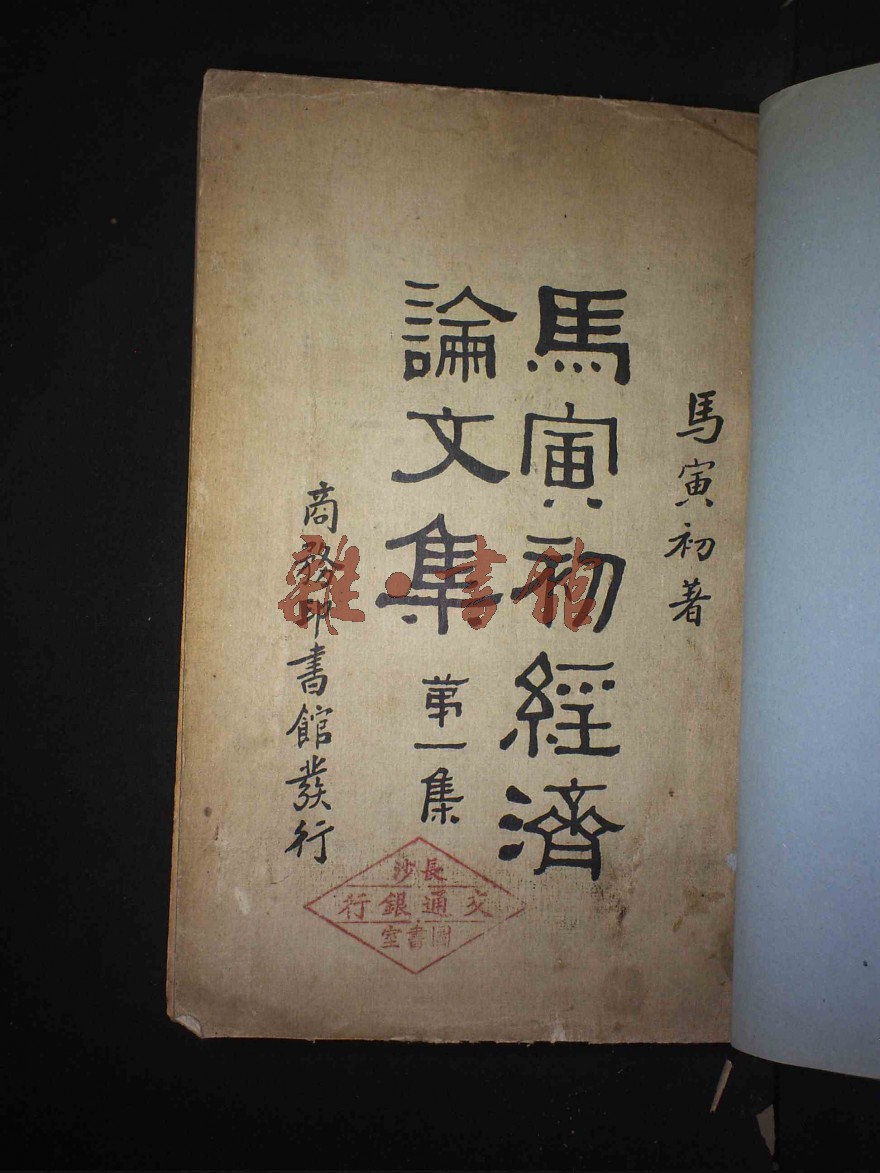 馬寅初著
馬寅初經濟
論文集 第一集
商務印書館發行
長沙
交通銀行
圖書室
雜·書館